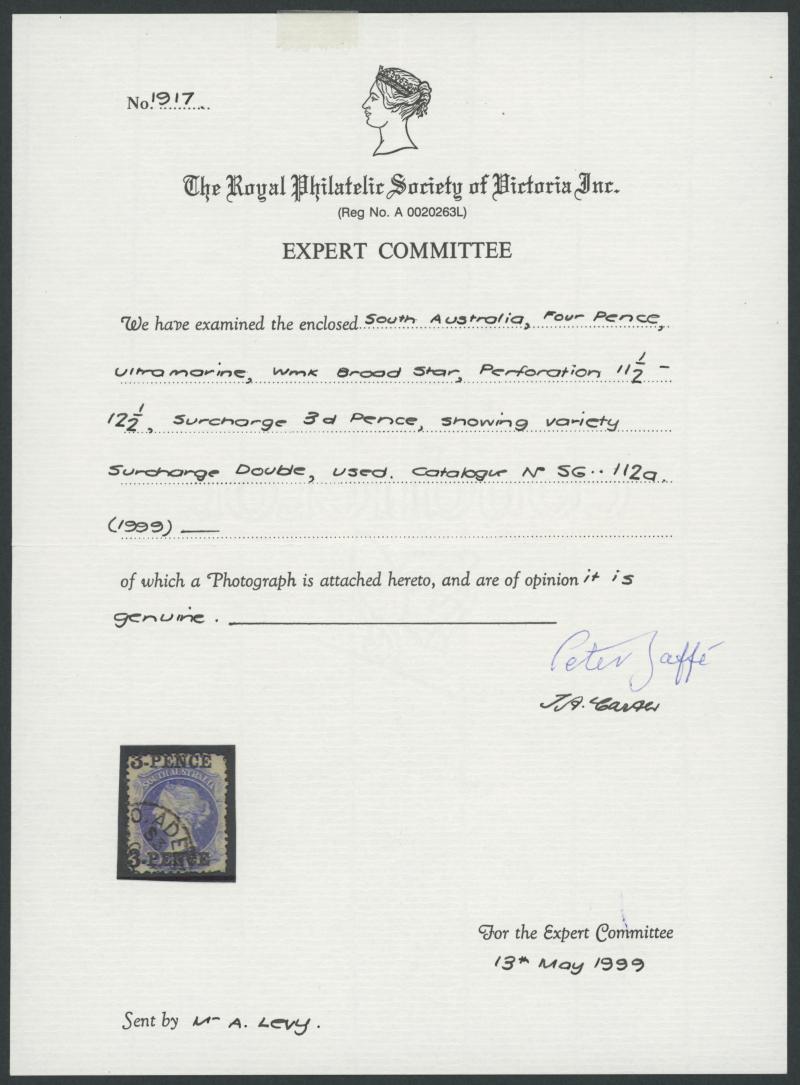 No. 1917
The Royal Philatelic Society of Victoria Inc.
(Reg No. A 0020263L)
EXPERT COMMITTEE
We have examined the enclosed South Australia, Four Pence,
Ultramarine, Wmk Broad Star, Perforation 11½ -
12½, Surcharge 3d Pence, showing variety
Surcharge Double, used. Catalogue Nº SG.. 112a.
(1999) —
of which a Photograph is attached hereto, and are of opinion it is
genuine.
Peter Jaffé
3-PENCE
SOUTH AUSTRALIA
O. ADE
3-PENCE
For the Expert Committee
13th May 1999
Sent by Mr A. Levy.